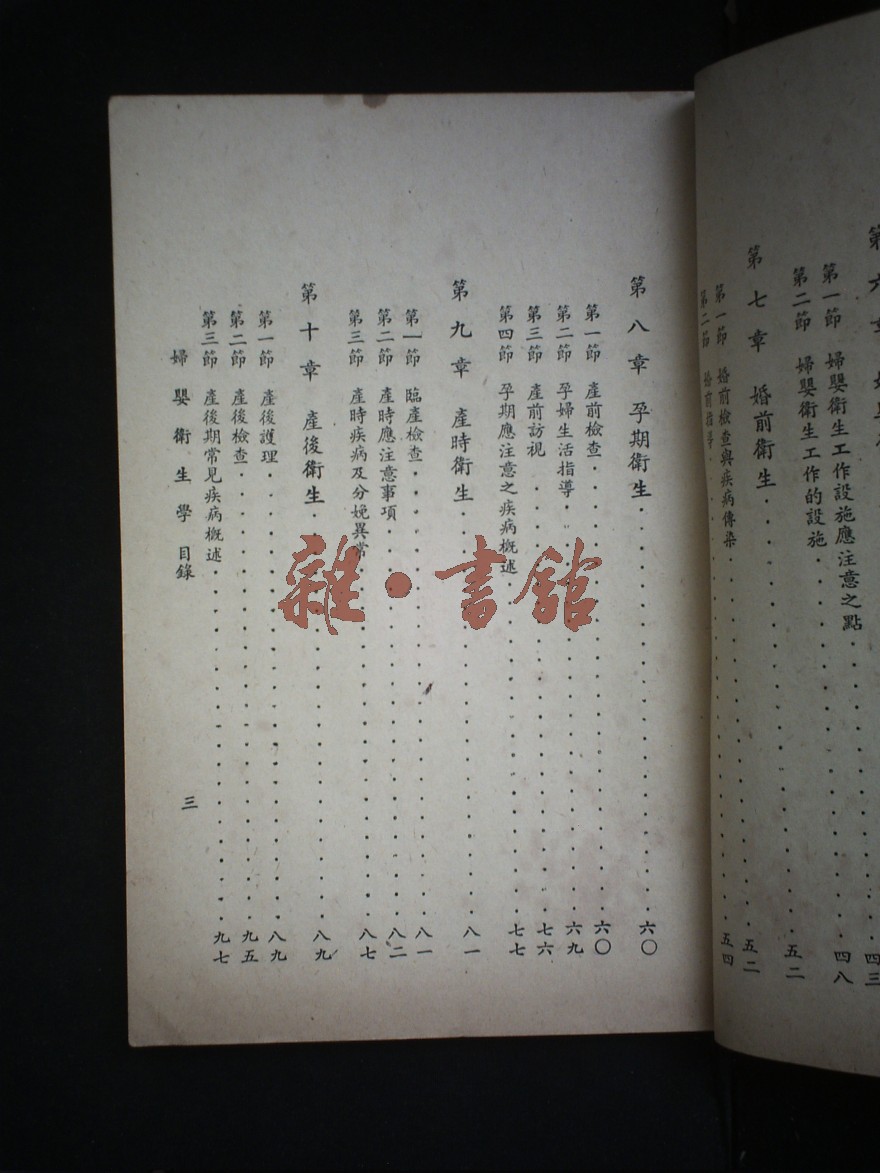 第六章
四三
第一節 婦嬰衛生工作設施應注意之點 四八
第二節 婦嬰衛生工作的設施 五二
第七章 婚前衛生 五二
第一節 婚前檢查與疾病傳染 五四
第二節 婚前指導
第八章 孕期衛生 六〇
第一節 產前檢查 六〇
第二節 孕婦生活指導 六九
第三節 產前訪視 七六
第四節 孕期應注意之疾病概述 七七
第九章 產時衛生 八一
第一節 臨產檢查 八一
第二節 產時應注意事項 八二
第三節 產時疾病及分娩異常 八七
第十章 產後衛生 八九
第一節 產後護理 八九
第二節 產後檢查 九五
第三節 產後期常見疾病概述 九七
婦嬰衛生學 目錄 三
雜·書館